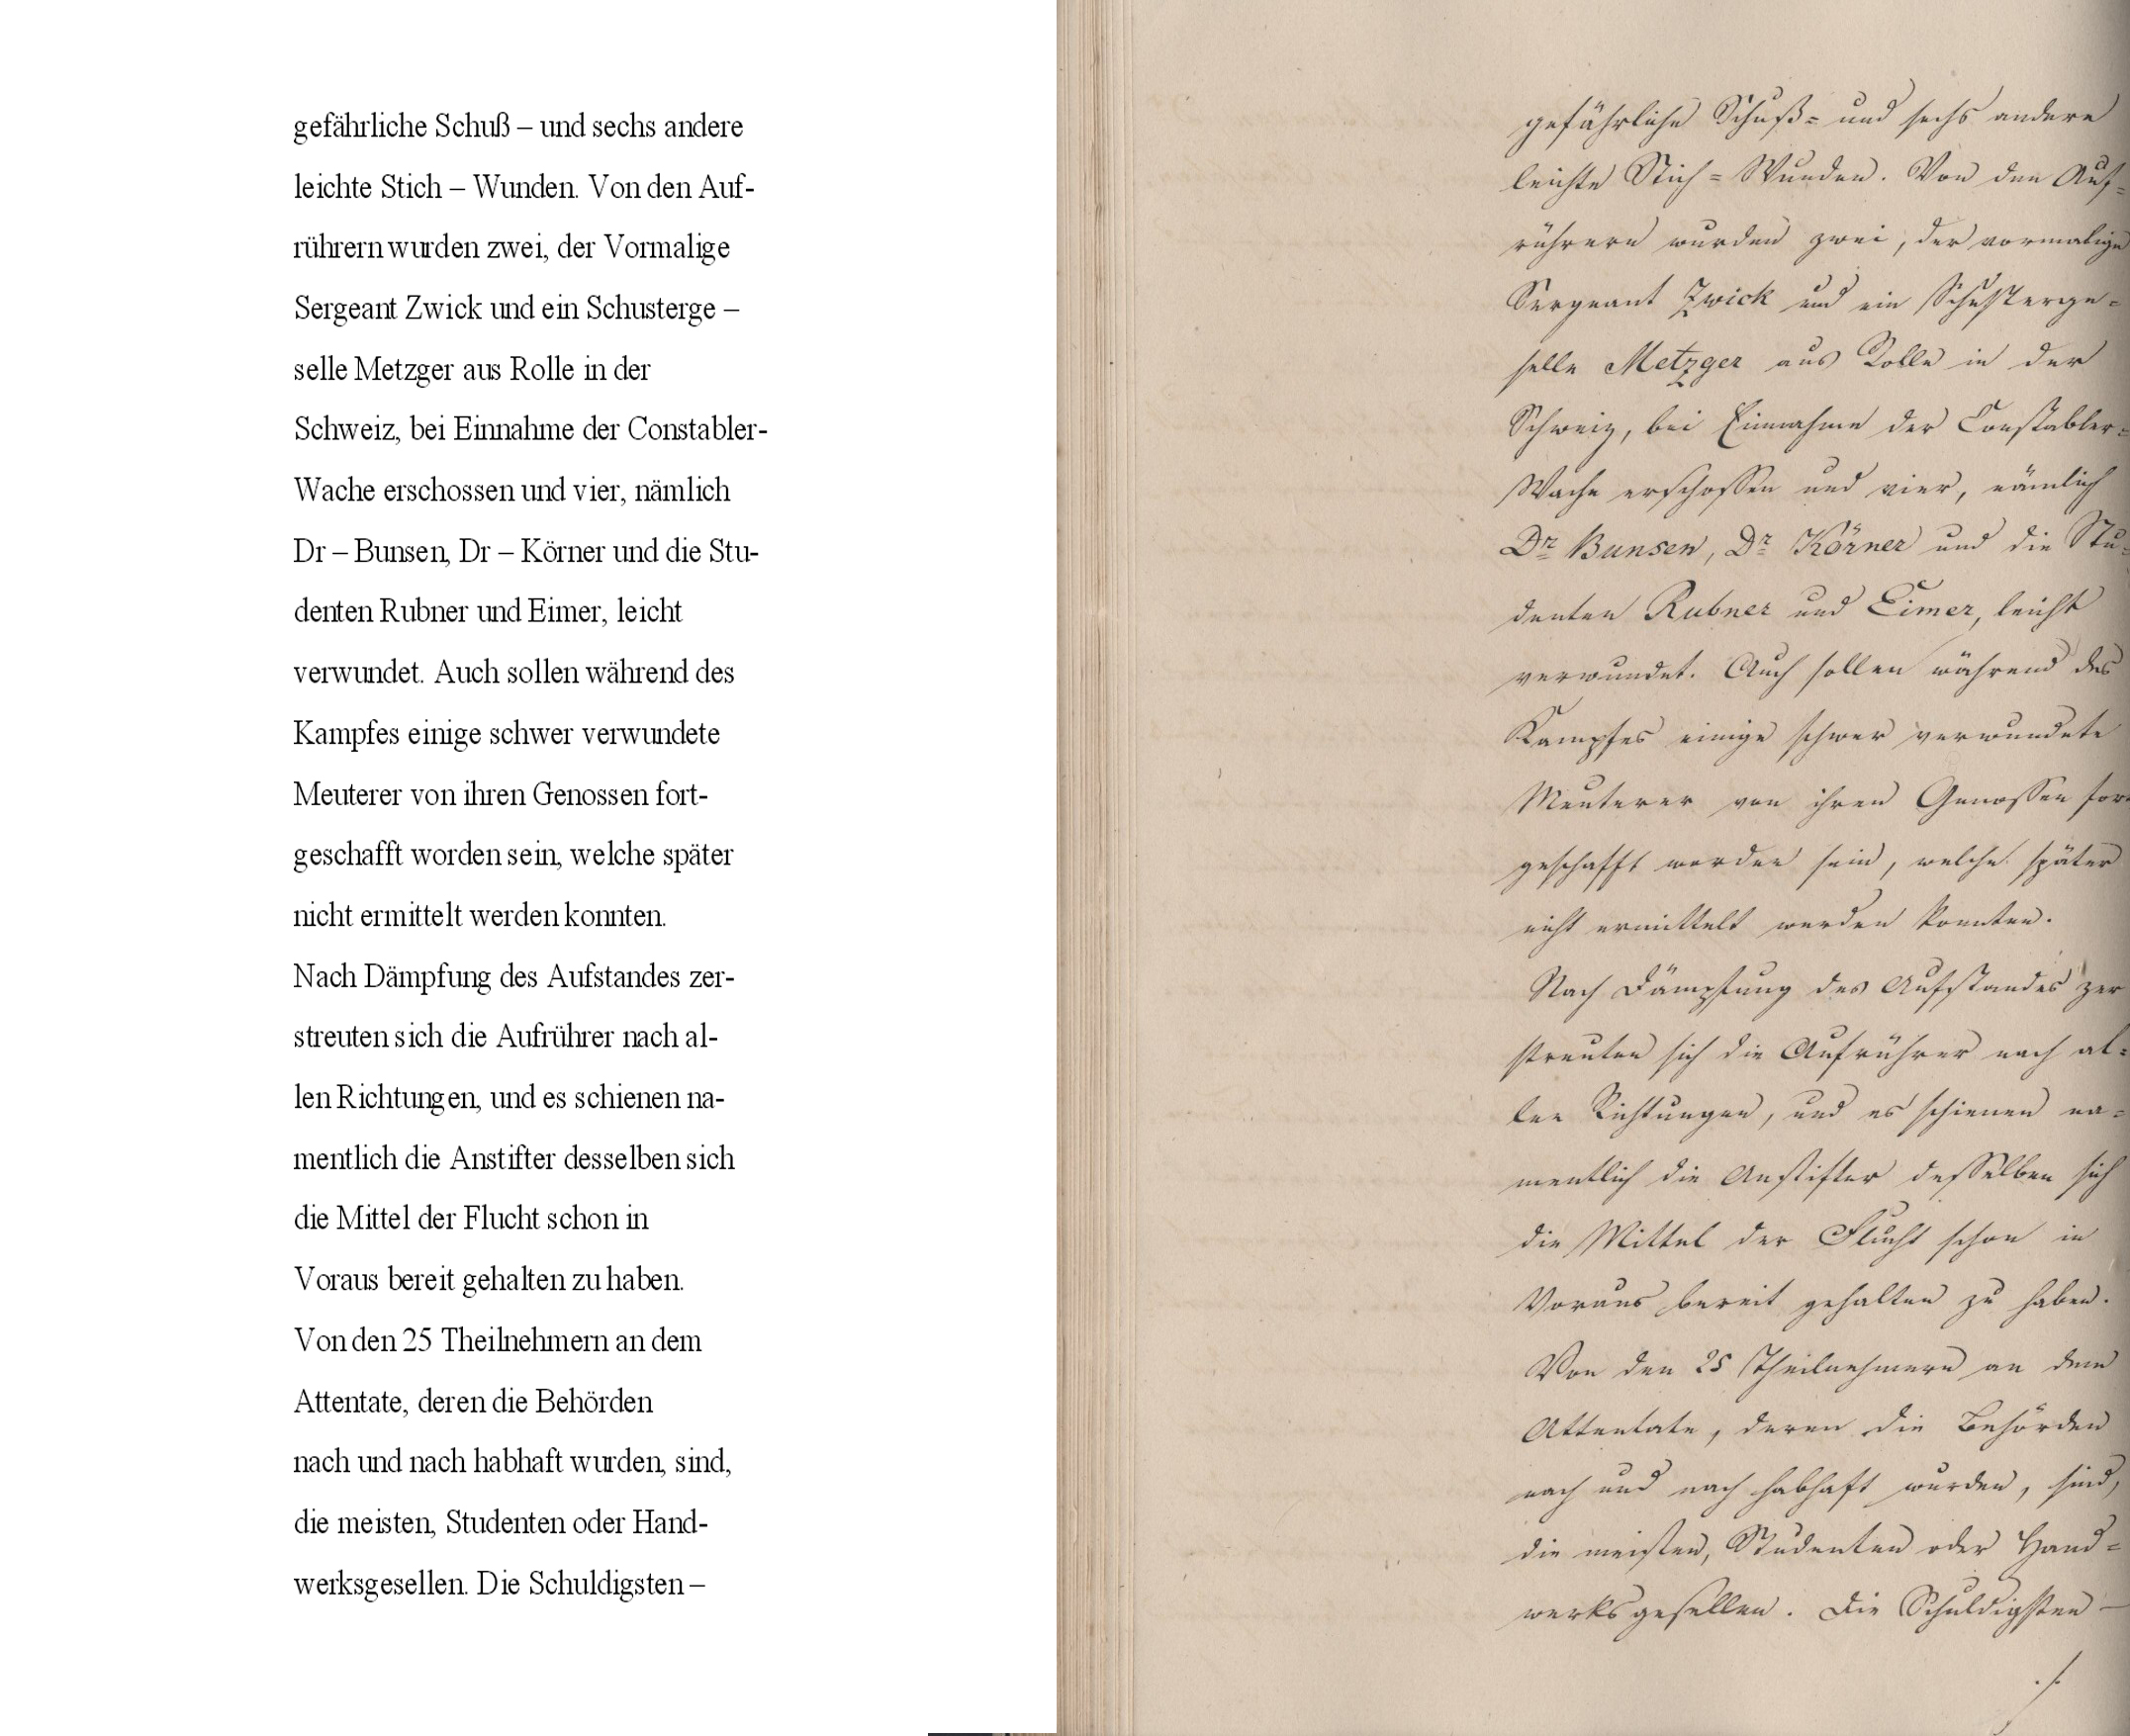 gefährliche Schuß – und sechs andere
leichte Stich – Wunden. Von den Auf-
rührern wurden zwei, der Vormalige
Sergeant Zwick und ein Schusterge –
selle Metzger aus Rolle in der
Schweiz, bei Einnahme der Constabler-
Wache erschossen und vier, nämlich
Dr – Bunsen, Dr – Körner und die Stu-
denten Rubner und Eimer, leicht
verwundet. Auch sollen während des
Kampfes einige schwer verwundete
Meuterer von ihren Genossen fort-
geschafft worden sein, welche später
nicht ermittelt werden konnten.
Nach Dämpfung des Aufstandes zer-
streuten sich die Aufrührer nach al-
len Richtungen, und es schienen na-
mentlich die Anstifter desselben sich
die Mittel der Flucht schon in
Voraus bereit gehalten zu haben.
Von den 25 Theilnehmern an dem
Attentate, deren die Behörden
nach und nach habhaft wurden, sind,
die meisten, Studenten oder Hand-
werksgesellen. Die Schuldigsten –
gefährliche Schuß= und sechs andere
leichte Stich= Wunden. Von den Auf=
rührern wurden zwei, der vormalige
Sergeant Zwick und ein Schusterge=
selle Metzger aus Rolle in der
Schweiz, bei Einnahme der Constabler=
Wache erschossen und vier, nämlich
Dr Bunsen, Dr Körner und die Stu=
denten Rubner und Eimer, leicht
verwundet. Auch sollen während des
Kampfes einige schwer verwundete
Meuterer von ihren Genossen for
geschafft worden sein, welche später
nicht ermittelt werden konnten.
Nach Dämpfung des Aufstandes zer
streuten sich die Aufrührer nach al=
len Richtungen, und es schienen na=
mentlich die Anstifter desselben sich
die Mittel der Flucht schon in
Voraus bereit gehalten zu haben.
Von den 25 Theilnehmern an dem
Attentate, deren die Behörden
nach und nach habhaft wurden, sind,
die meisten, Studenten oder Hand=
werksgesellen. Die Schuldigsten —
./.